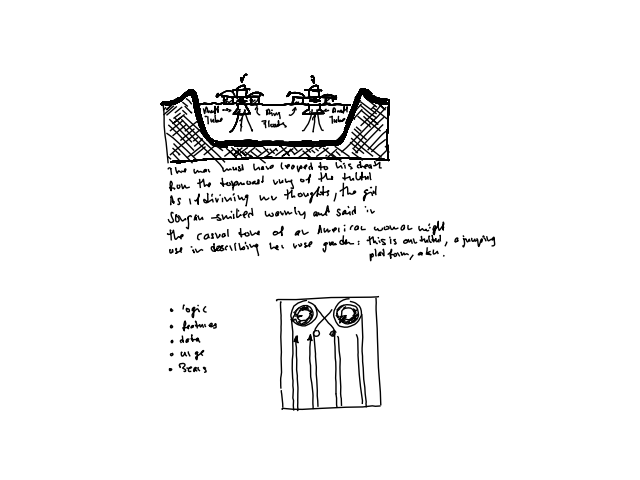 Draft
Tube
Ring
Floats
Draft
Tube
The man must have leaped to his death
from the topmost rung of the
As if divining my thoughts, the girl
smiled warmly and said in
the casual tone of an American woman might
use in describing her rose garden: this is our, a jumping
platform,
• logic
• features
• data
• urge
• Bears